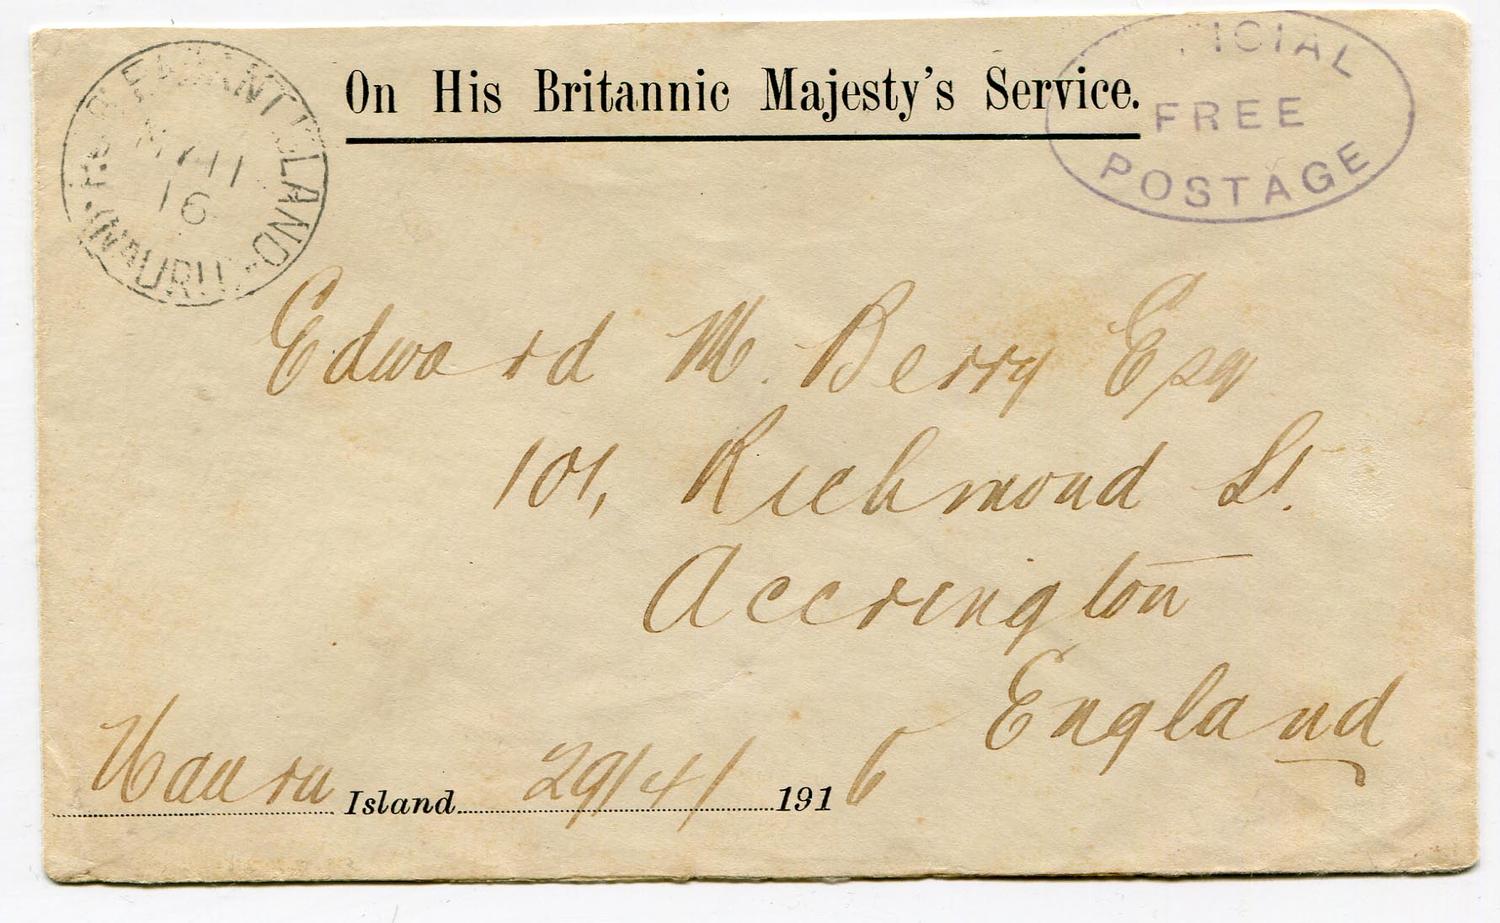 On His Britannic Majesty's Service.
PLEASANT ISLAND
MY 11
16
(NAURU)
FREE
POSTAGE
Edward M. Berry Esq
101, Richmond St.
Accrington
England
Nauru Island 29/4/ 1916